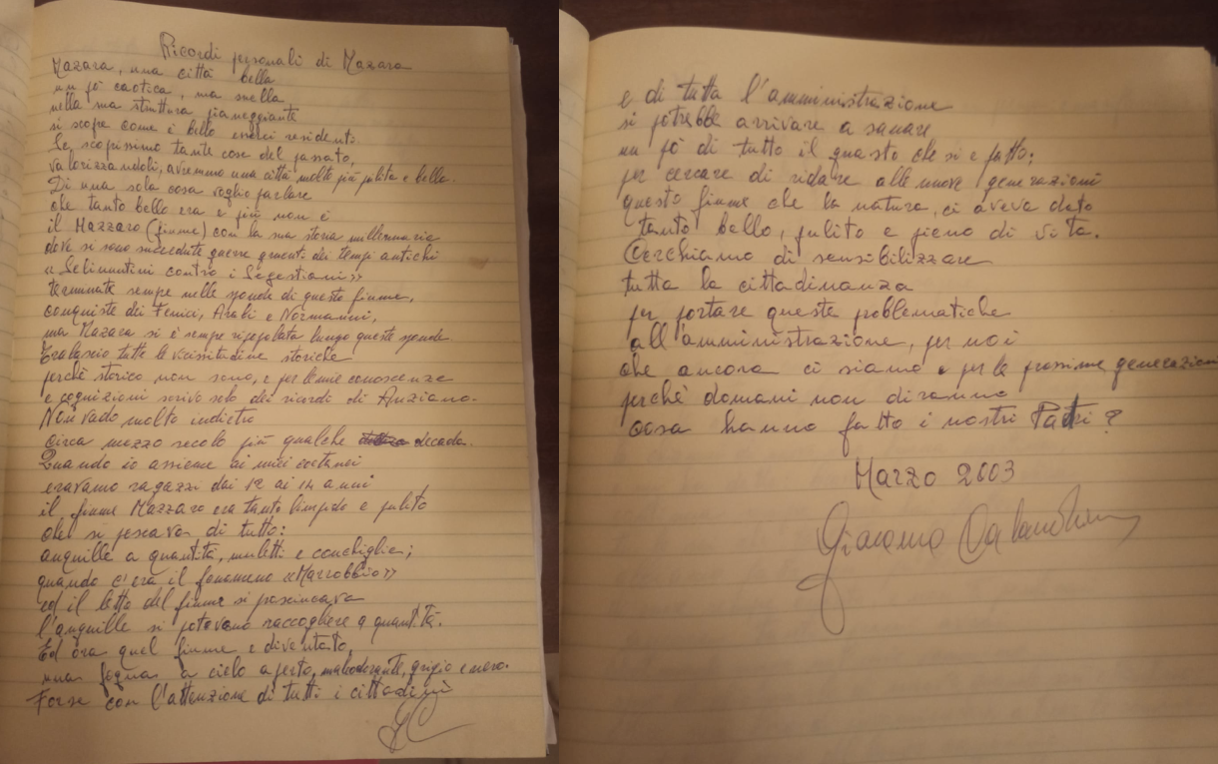 Ricordi personali di Mazara
Mazara, una città bella
un pò caotica, ma snella,
nella sua struttura pianeggiante
si scopre come è bello esserci residenti.
Se scoprissimo tante cose del passato,
valorizzandoli, avremmo una città molto più pulita e bella.
Di una sola cosa voglio parlare
che tanto bello era e più non è
il Mazzaro (fiume) con la sua storia millenaria
dove si sono succedute guerre cruenti dei tempi antichi
"Selinuntini contro i Segestani»
terminate sempre nelle sponde di questo fiume,
conquiste dei Fenici, Arabi e Normanni,
ma Mazara si è sempre ripopolata lungo queste sponde.
Tralascio tutte le vicissitudine storiche
perchè storico non sono, e per le mie conoscenze
e cognizioni scrivo solo dei ricordi di Anziano.
Non vado molto indietro
circa mezzo secolo più qualche decada.
Quando io assieme ai miei coetanei
eravamo ragazzi dai 12 ai 14 anni
il fiume Mazzaro era tanto limpido e pulito
che si pescava di tutto:
anguille a quantità, muletti e conchiglie;
quando c'era il fenomeno «Marrobbio»
ed il letto del fiume si prosciucava
l'anguille si potevano raccogliere a quantità.
Ed ora quel fiume è diventato,
una fogna a cielo aperto, maleodorante, grigio e nero.
Forse con l'attenzione di tutti i cittadini
GC
e di tutta l'amministrazione
si potrebbe arrivare a sanare
un pò di tutto il guasto che si è fatto;
per cercare di ridare alle nuove generazioni
questo fiume che la natura, ci aveva dato
tanto bello, pulito e pieno di vita.
Cerchiamo di sensibilizzare
tutta la cittadinanza
per portare queste problematiche
all'amministrazione, per noi
che ancora ci siamo e per le prossime generazioni
perchè domani non diranno
cosa hanno fatto i nostri Padri?
Marzo 2003
Giacomo